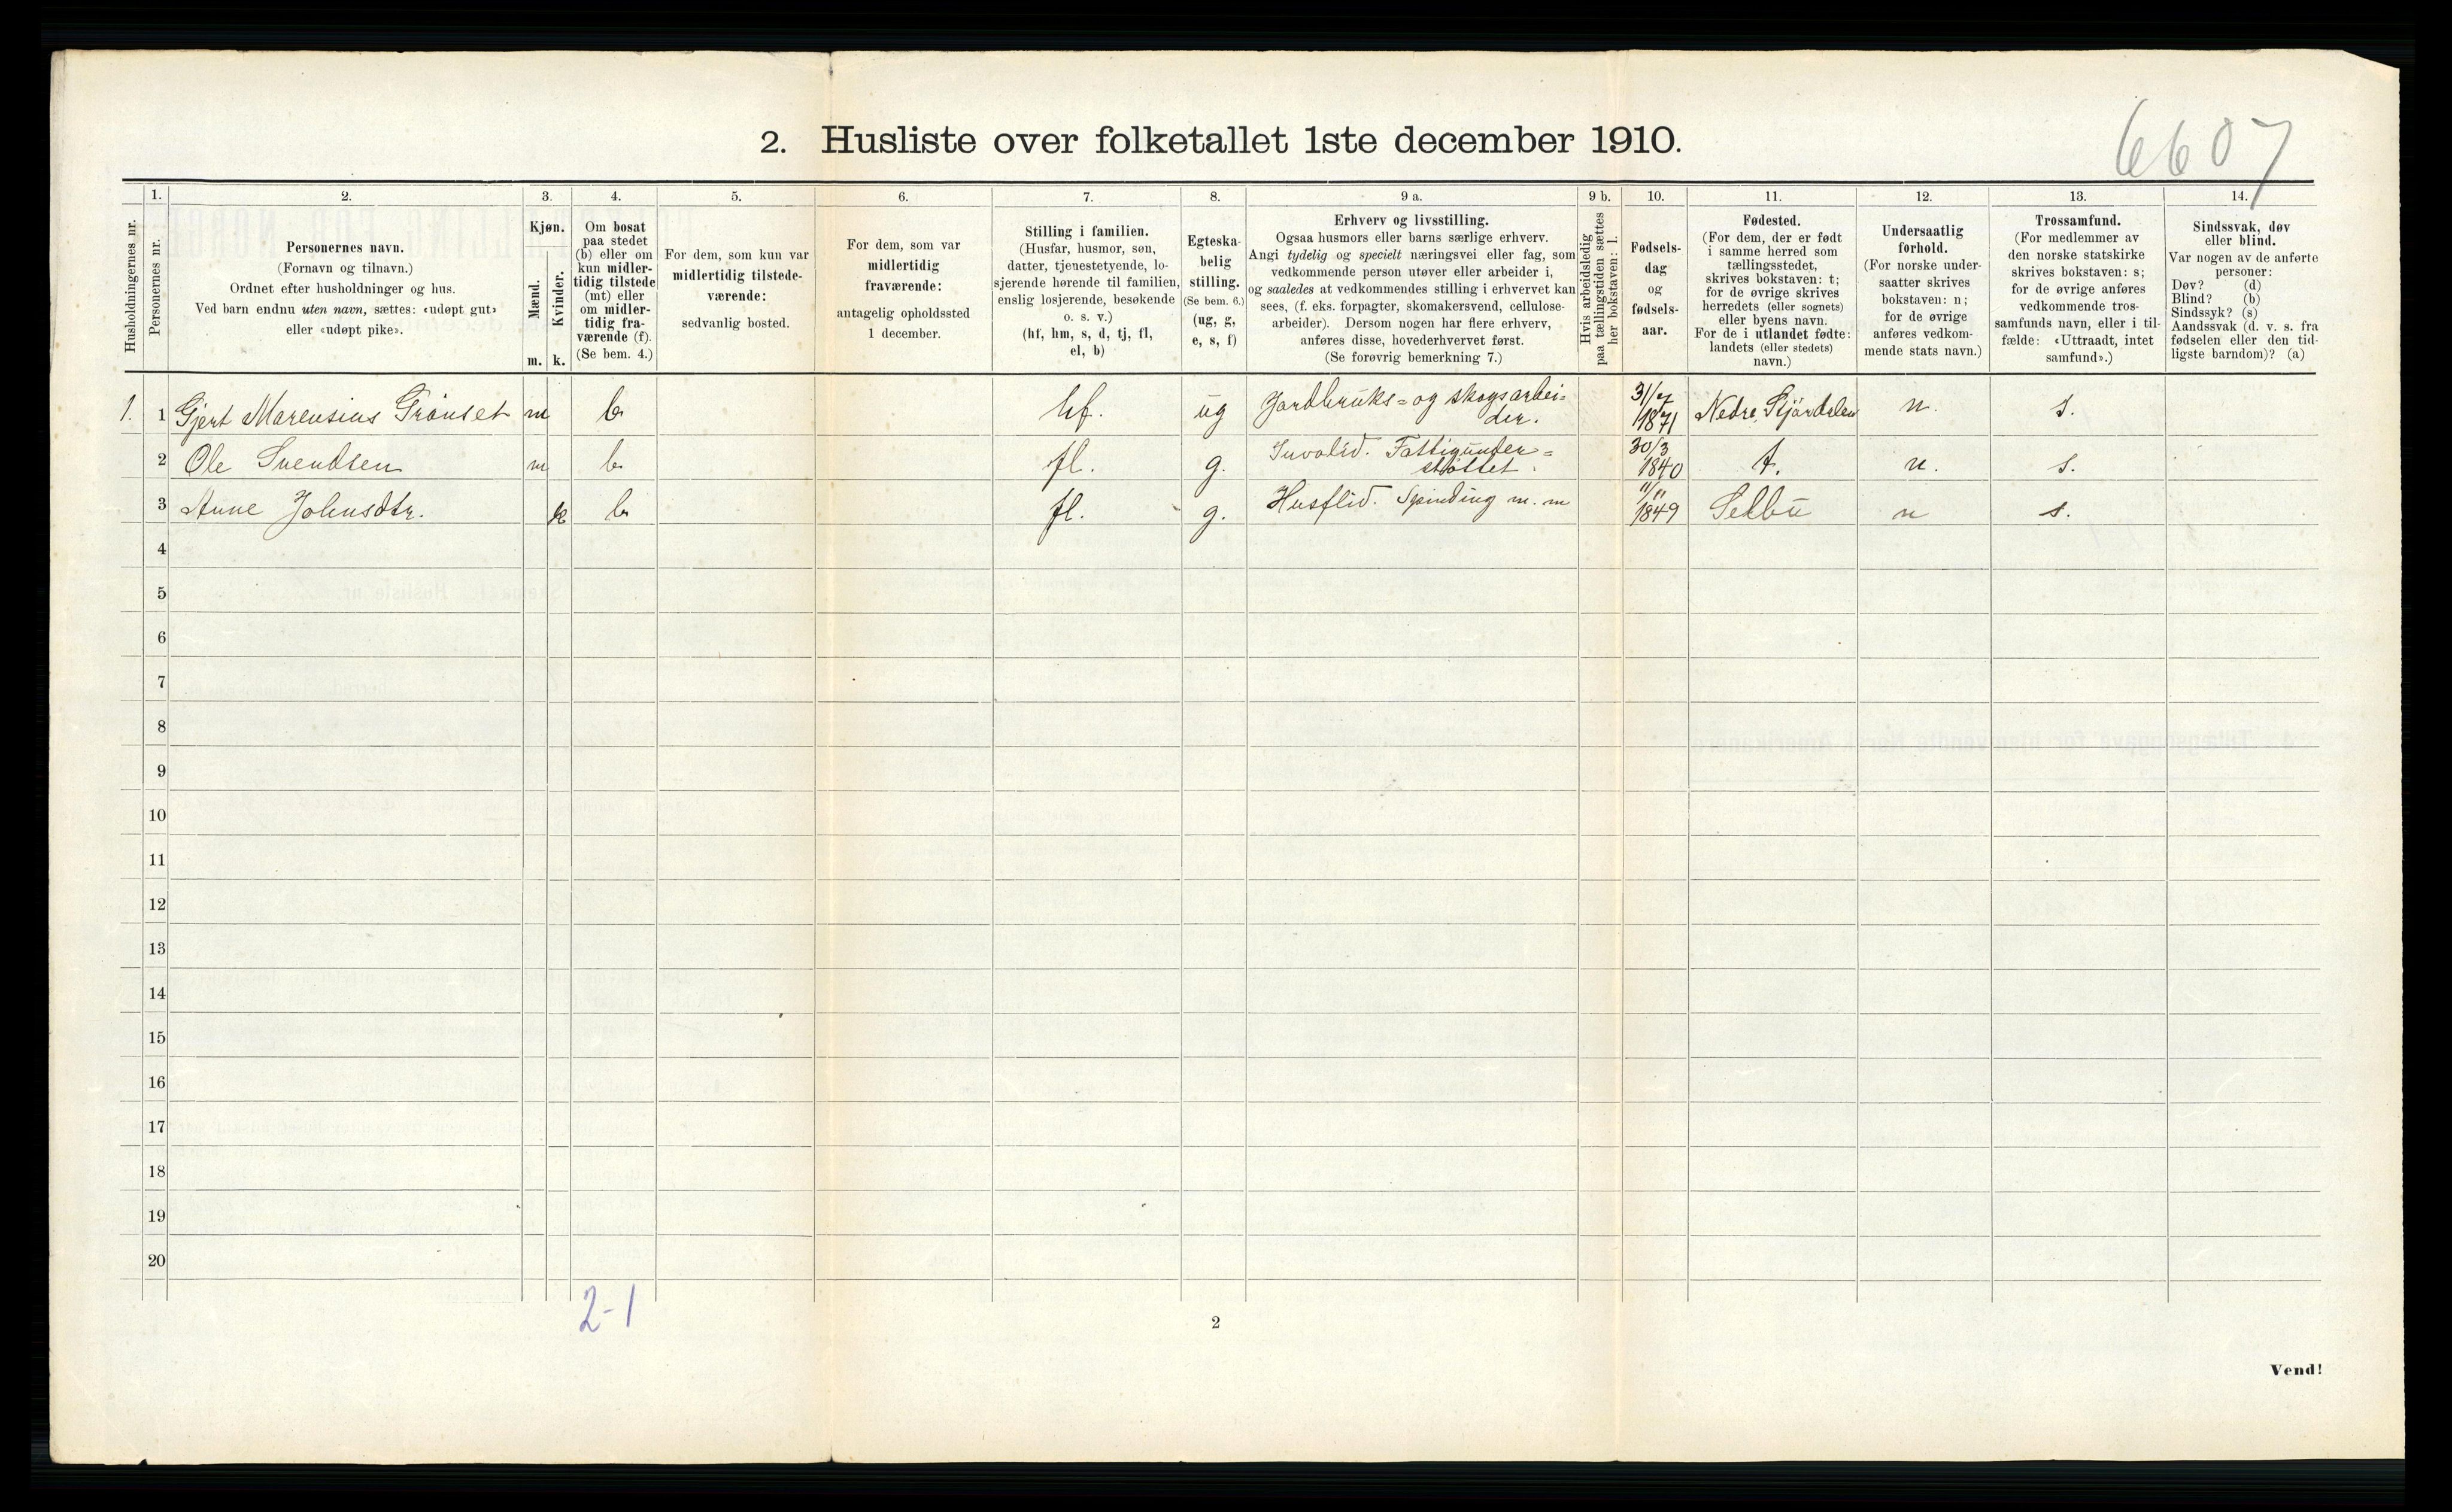 6607
2. Husliste over folketallet 1ste december 1910.
Husholdningernes nr.
1.
Personernes nr.
2.
Personernes navn.
(Fornavn og tilnavn.)
Ordnet efter husholdninger og hus.
Ved barn endnu uten navn, sættes: «udøpt gut»
eller «udøpt pike».
3.
Kjøn.
Mænd.
m.
Kvinder.
k.
4.
Om bosat
paa stedet
(b) eller om
kun midler-
tidig tilstede
(mt) eller
om midler-
tidig fra-
værende (f).
(Se bem. 4.)
5.
For dem, som kun var
midlertidig tilstede-
værende:
sedvanlig bosted.
6.
For dem, som var
midlertidig
fraværende:
antagelig opholdssted
1 december.
7.
Stilling i familien.
(Husfar, husmor, søn,
datter, tjenestetyende, lo-
sjerende hørende til familien,
enslig losjerende, besøkende
o. s. v.)
(hf, hm, s, d, tj, fl,
el, b)
8.
Egteska-
belig
stilling.
(Se bem. 6.)
(ug, g,
e, s, f)
9 a.
Erhverv og livsstilling.
Ogsaa husmors eller barns særlige erhverv.
Angi tydelig og specielt næringsvei eller fag, som
vedkommende person utøver eller arbeider i,
og saaledes at vedkommendes stilling i erhvervet kan
sees, (f. eks. forpagter, skomakersvend, cellulose-
arbeider). Dersom nogen har flere erhverv,
anføres disse, hovederhvervet først.
(Se forøvrig bemerkning 7.)
9 b.
Hvis arbeidsledig
paa tællingstiden sættes
her bokstaven: l.
10.
Fødsels-
dag
og
fødsels-
aar.
11.
Fødested.
(For dem, der er født
i samme herred som
tællingsstedet,
skrives bokstaven: t;
for de øvrige skrives
herredets (eller sognets)
eller byens navn.
For de i utlandet fødte:
landets (eller stedets)
navn.)
12.
Undersaatlig
forhold.
(For norske under-
saatter skrives
bokstaven: n;
for de øvrige
anføres vedkom-
mende stats navn.)
13.
Trossamfund.
(For medlemmer av
den norske statskirke
skrives bokstaven: s;
for de øvrige anføres
vedkommende tros-
samfunds navn, eller i til-
fælde: «Uttraadt, intet
samfund».)
14.
Sindssvak, døv
eller blind.
Var nogen av de anførte
personer:
Døv? (d)
Blind? (b)
Sindssyk? (s)
Aandssvak (d. v. s. fra
fødselen eller den tid-
ligste barndom)? (a)
1. 1 Gjert Marensius Grönset m b hf. ug Jordbruks= og skogsarbei=
der. 31/7
1871 Nedre Stjördalen n. s.
2 Ole Svendsen m b fl. g. Invalid. Fattigunder=
støttet. 30/3
1840 t. n. s.
3 Anne Johnsdtr. k b fl. g. Husflid. Spinding m. m 11/11
1849 Selbu n s.
4
5
6
7
8
9
10
11
12
13
14
15
16
17
18
19
20
2-1
2
Vend!